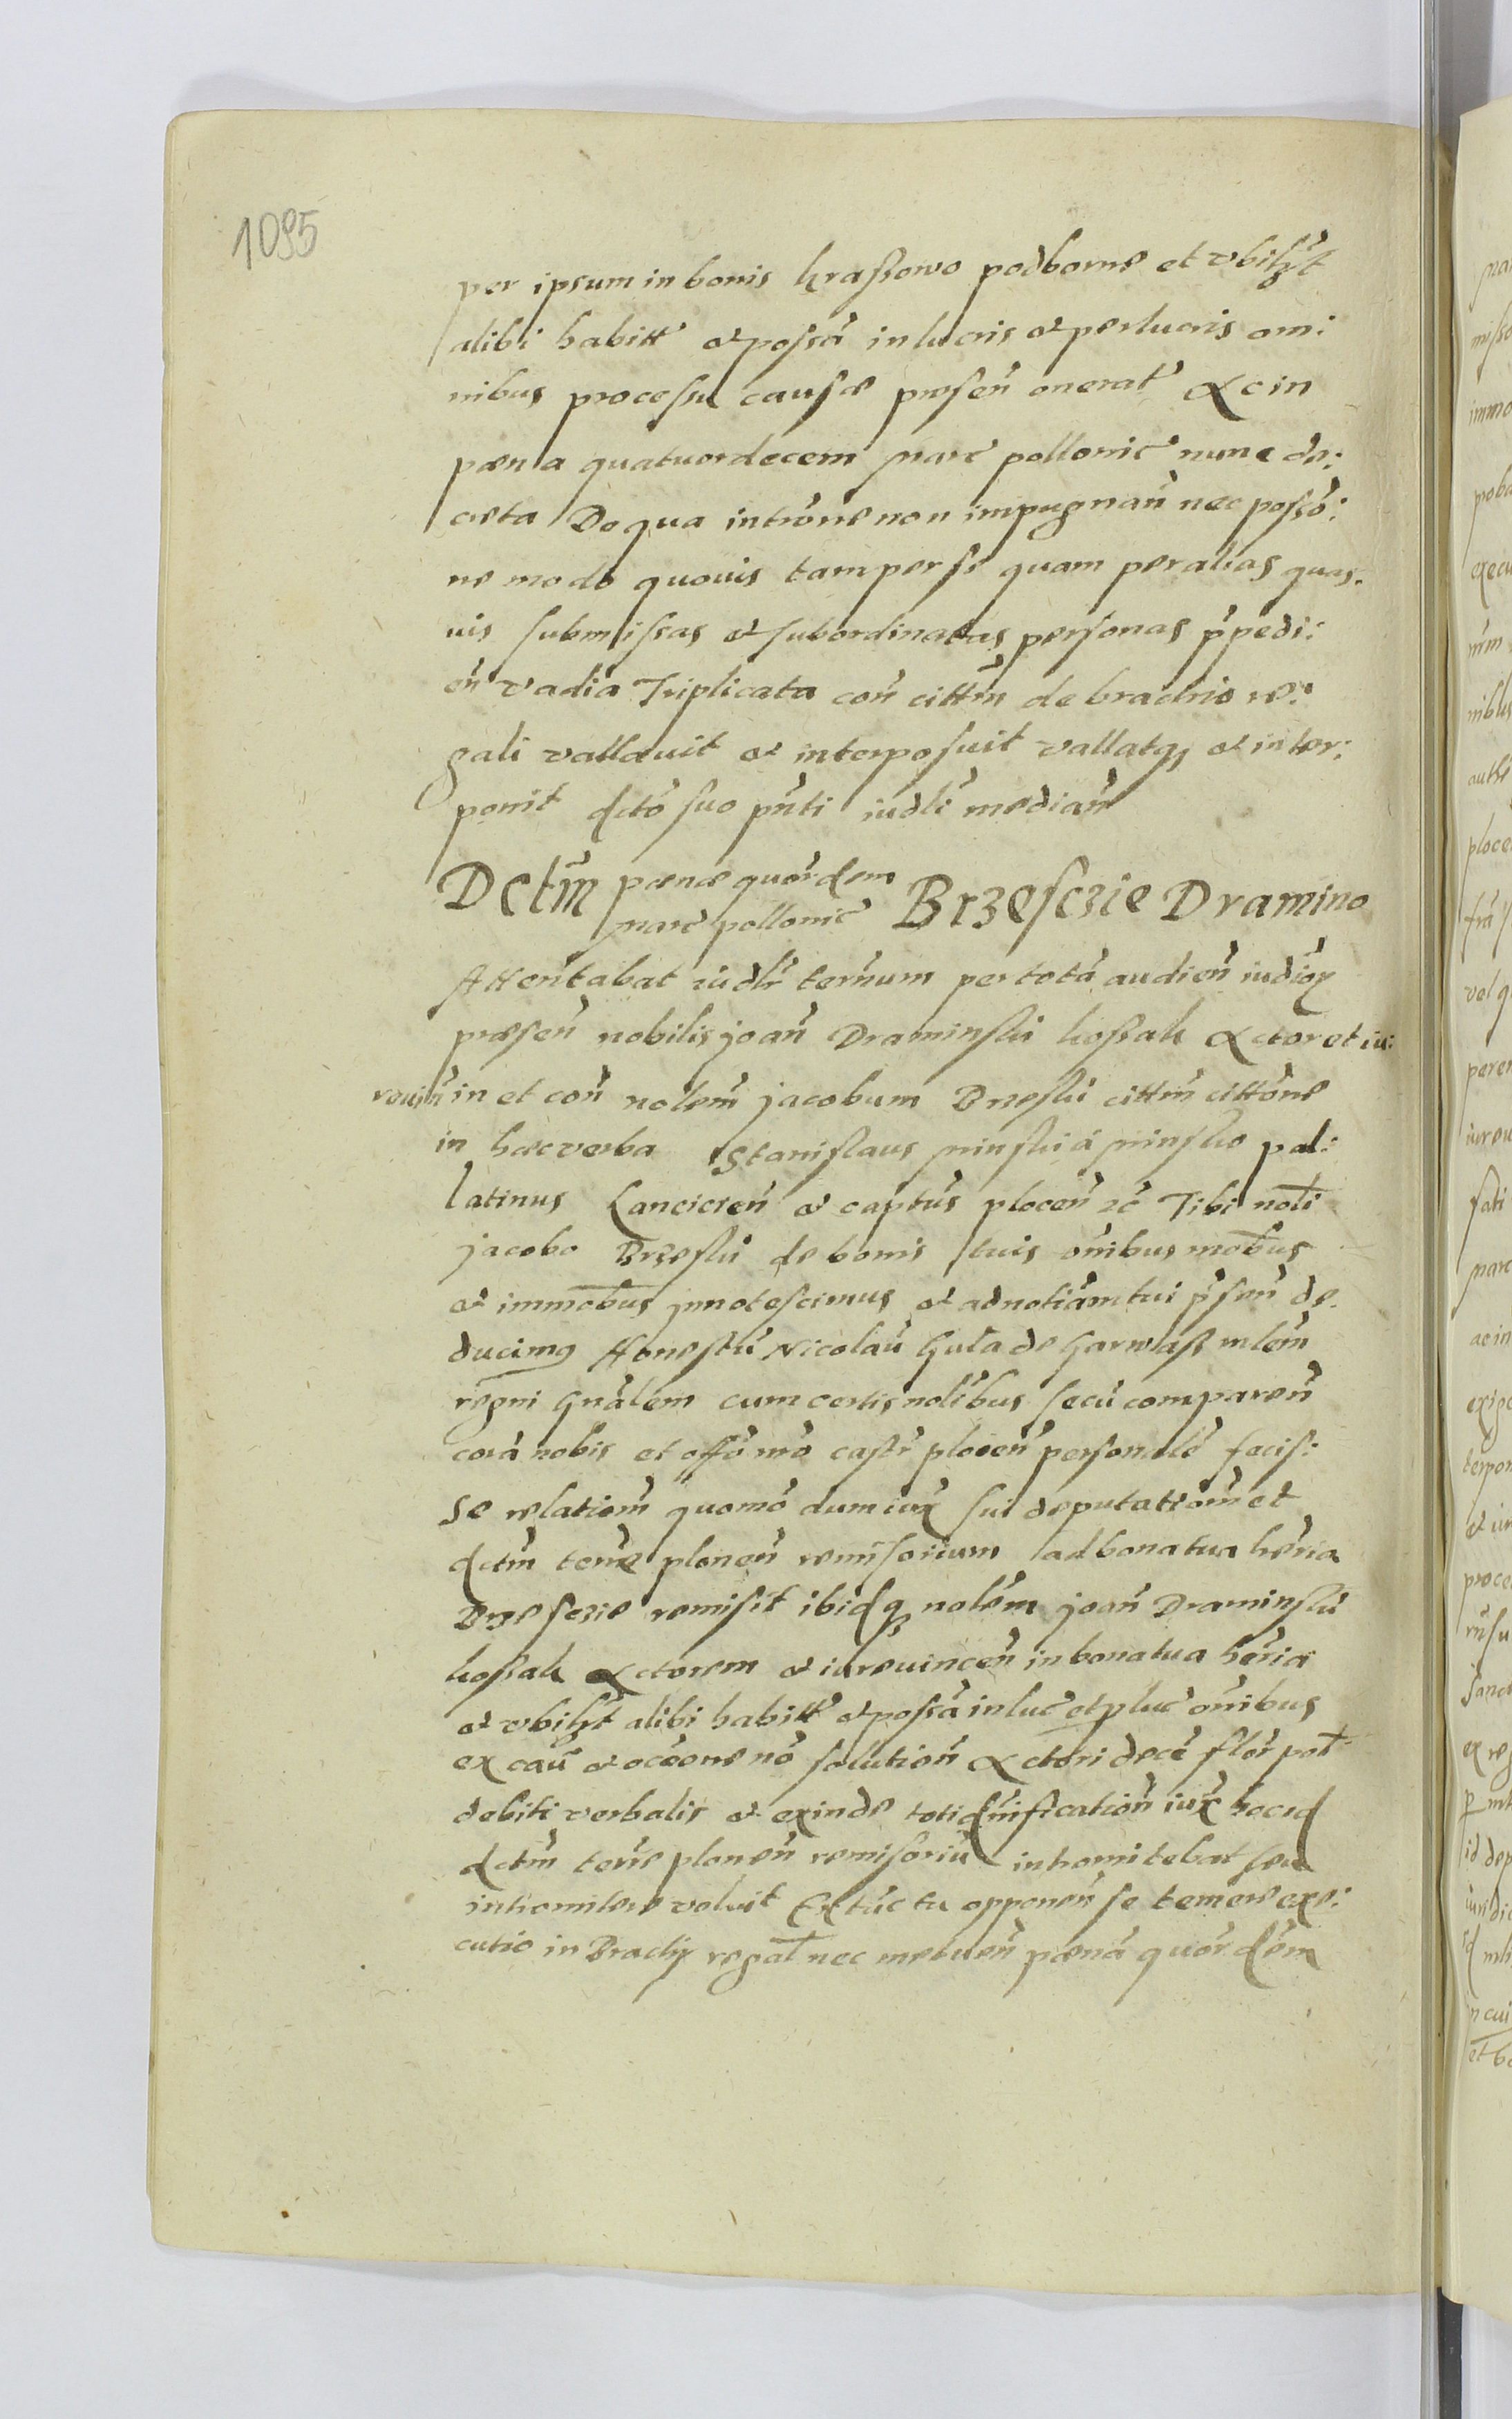 1095
per ipsum in bonis Kraſsowo podborne et vbilꝫt
alibi habitt et poſsã in lucris et perlucris om:
nibus proceſsu cauſæ preſeñ onerat ac in
pæna quatuordecem marc pollonic nunc de:
creta De qua intrõne non impugnañ nec poſsõ:
ne modo quovis tam per ſe quam per alias quas-
uis ſubmiſsas et ſubordinatas perſonas p̃pedi:
eñ vadia Triplicata coñ cittm̃ de brachio re:
gali vallavit et interpoſuit vallatqꝫ et inter:
ponit dcto ſuo pñti iudli mediañ
Dctm̃ pænæ quordem
marc pollonic Brzeſczie Dramino
Attentabat iudlr ternum per totã audieñ iudior
præſeñ nobilis joañ Draminſki koſsak actor et iu:
reuiñ in et coñ nolem̃ jacobum Brzeſki cittm̃ cittõne
in hæc verba Staniſlaus minſki á minſko pal:
latinus Lancicień et captus ploceñ ꝛc̃ Tibi noli
jacobo Brzeſki de bonis tuis om̃ibus mobus
et immobus jnnoteſcimus et ad notiãm tui p̃ſeñ de-
ducimꝰ Honeſtũ Nicolaũ Guła de Garwaſz mlem̃
regni Gnãlem cum certis nolibus ſecũ compareñ
corã nobis et offõ mõ caſtr̃ ploceñ perſonalr faciſ:
se relationem̃ quomõ dum iux ſui deputationem̃ et
dctm̃ terræ ploneñ remiſsorium ad bona tua hæria
Brzeſczie remiſit ibidqꝫ nolem̃ joañ Draminſki
koſsak actorem et iureuinceñ in bona tua hæria
et vbilꝫt alibi habitt et poſsã in luc et pluc om̃ibus
ex cau et occõne nõ ſolutioñ actori decẽ flor pol
debiti verbalis et exinde toti dm̃ificatioñ iux hocid
dctm̃ terræ ploneñ remiſsoriũ intromitebat ſeu
intromitere voluit Ex tũc tu opponeñ ſe temere exe:
cutio in Brachij regal nec metueñ pænã quor dem